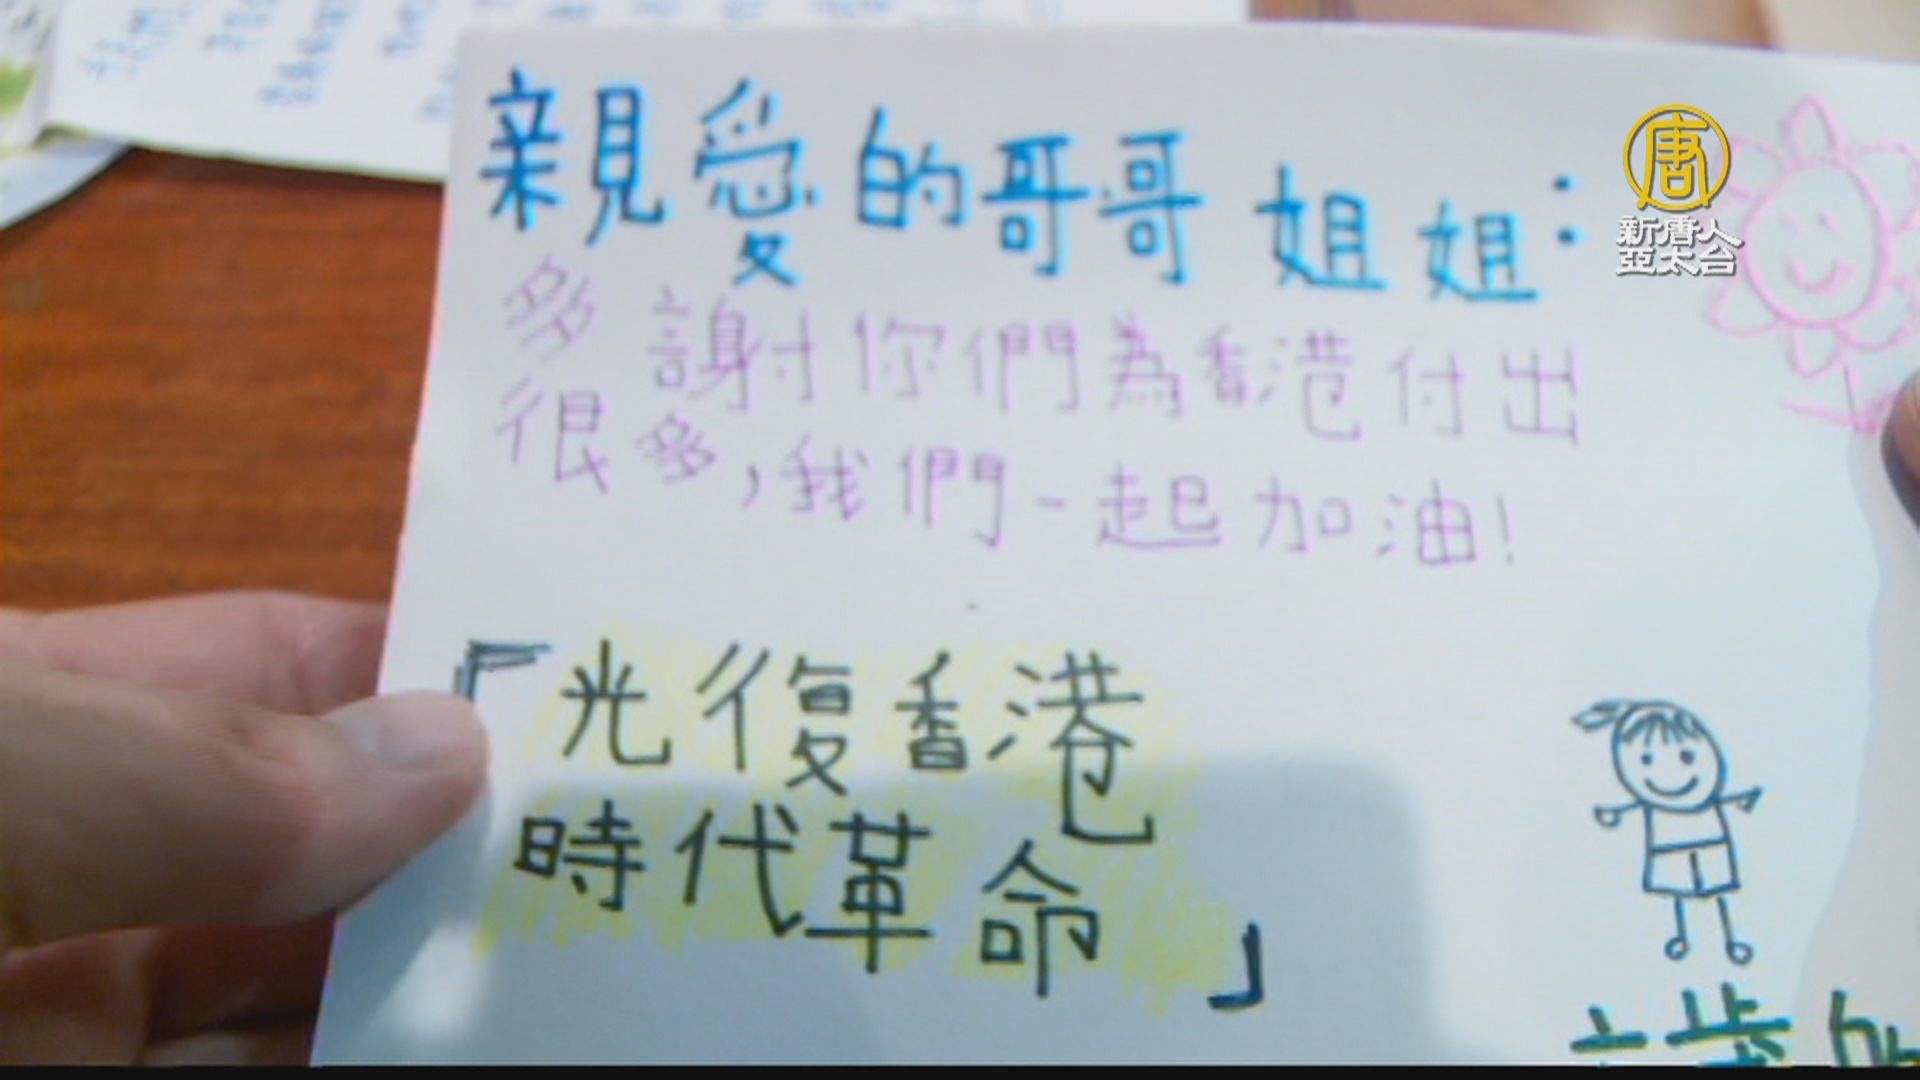 親愛的哥哥姐姐：
多謝你們為香港付出
很多，我們一起加油！
「光復香港
時代革命」
六歲的
唐
新唐人
亞太台